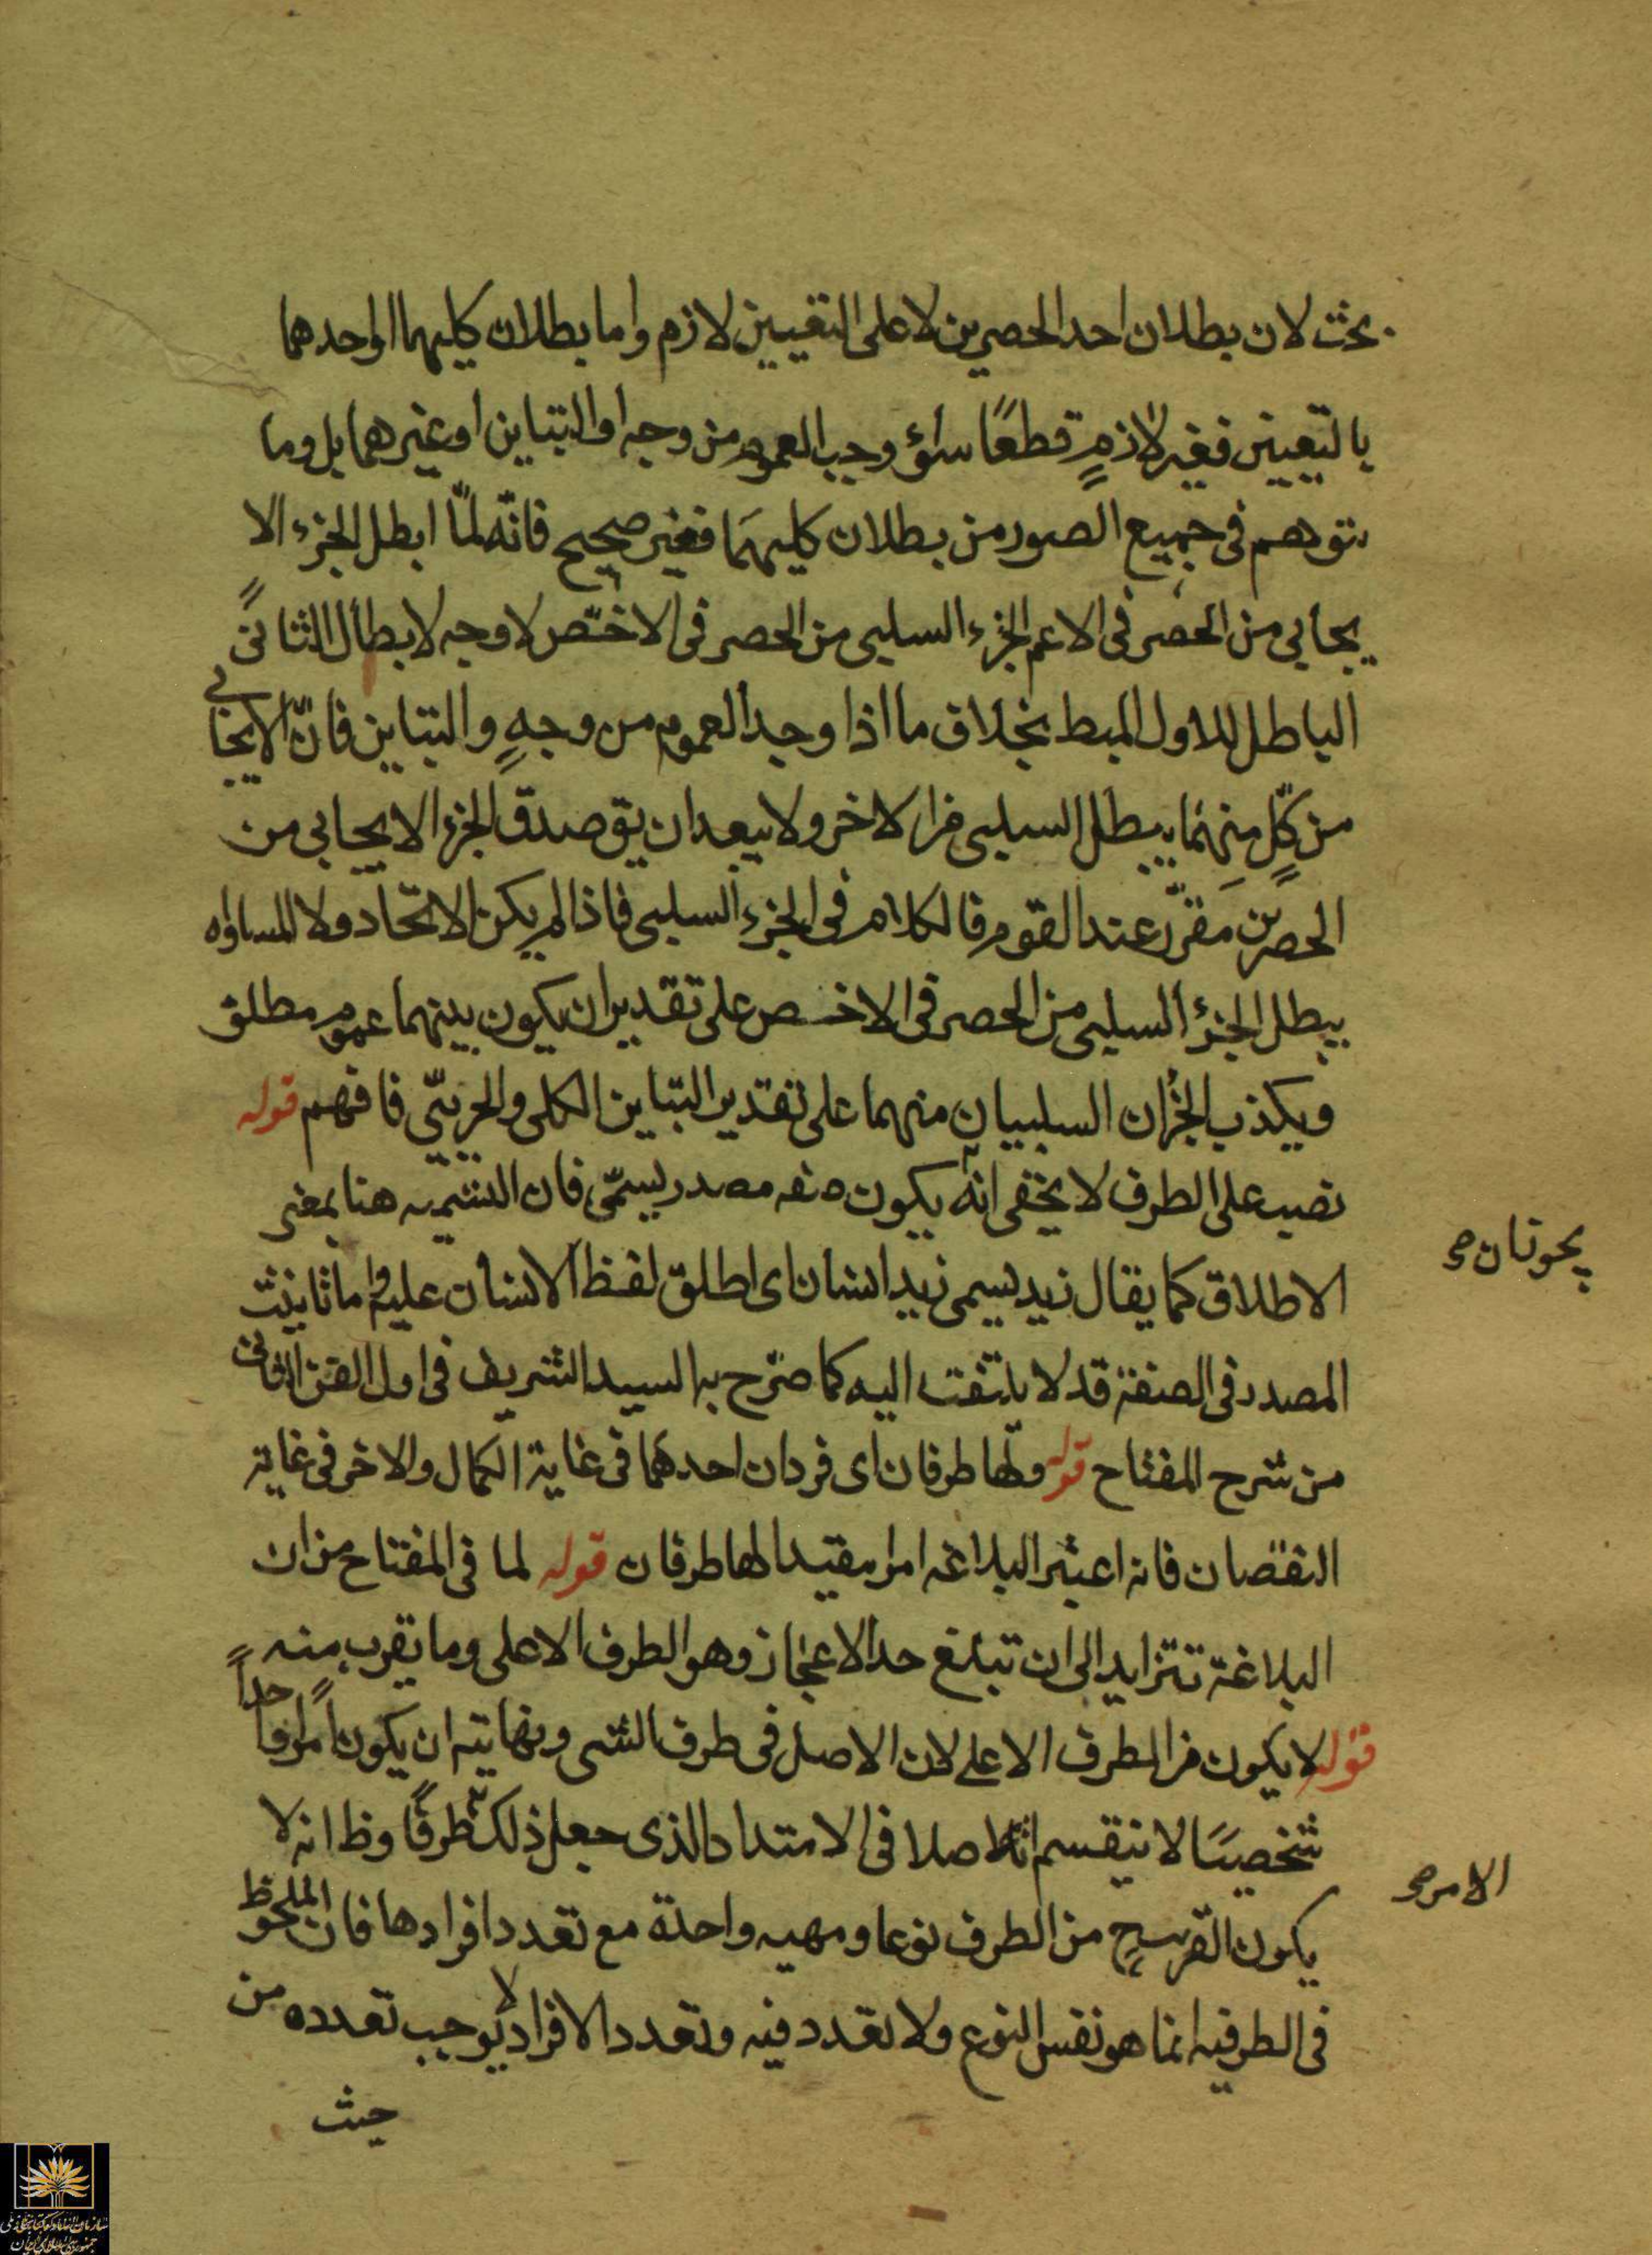 بحث لان بطلان احد الحصرين لا على التعيين لازم واما بطلان كليهما او احدهما
بالتّعيين فغير لازمٍ قطعًا سواء وجب العموم من وجه او التباين او غيرهما بل وما
يتوهم فى جميع الصور من بطلان كليهمَا فغير صحيح فانّه لمّا ابطل الجزء الا
يجابي من الحصر فى الاعم الجزء السلبى من الحصر فى الاخصّ لا وجه لابطال الثانى
الباطل للاول المبط بخلاف ما اذا وجد العموم من وجهٍ والتباين فانّ الايجابي
من كلٍّ منهما يبطل السلبى من الاخر ولا يبعد ان يق صدق الجزء الايجابي من
الحصرين مَقرّر عند القوم فالكلام فى الجزء السلبى فاذا لم يكن الاتحاد ولا المساواه
يبطل الجزء السلبى من الحصر فى الاخص على تقدير ان يكون بينهما عموم مطلق
ويكذب الجزان السلبيان منهما على تقدير التباين الكلى والجزئىّ فافهم قوله
نصب على الطرف لا يخفى انه يكون صفه مصدر يسمّى فان التسميه هنا بمعنى
الاطلاق كما يقال زيد يسمى زيد انسان اى اطلق لفظ الانسان عليه واما تانيث
المصدر فى الصفة قد لا يلتفت اليه كما صرّح به السيد الشريف فى اول الفن الثانى
من شرح المفتاح قوله ولها طرفان اى فردان احدهما فى غاية الكمال والاخر فى غاية
النقصان فانه اعتبر البلاغه امرا مقيدا لها طرفان قوله لما فى المفتاح من ان
البلاغة تتزايد الى ان تبلغ حد الاعجاز وهو الطرف الاعلى وما يقرب منه
قوله لا يكون من الطرف الاعلى لان الاصل فى طرف الشى ونهايته ان يكون امرا واحداً
شخصيًا لا ينقسم اصلا فى الامتداد الذى جعل ذلك طرفًا وظ انه لا
يكون القريب من الطرف نوعا ومهيه واحدة مع تعدد افرادها فان الملحوظ
فى الطرفيه انما هو نفس النوع ولا تعدد فيه وتعدد الافراد لا يوجب تعدده من
حيث
الامر صح